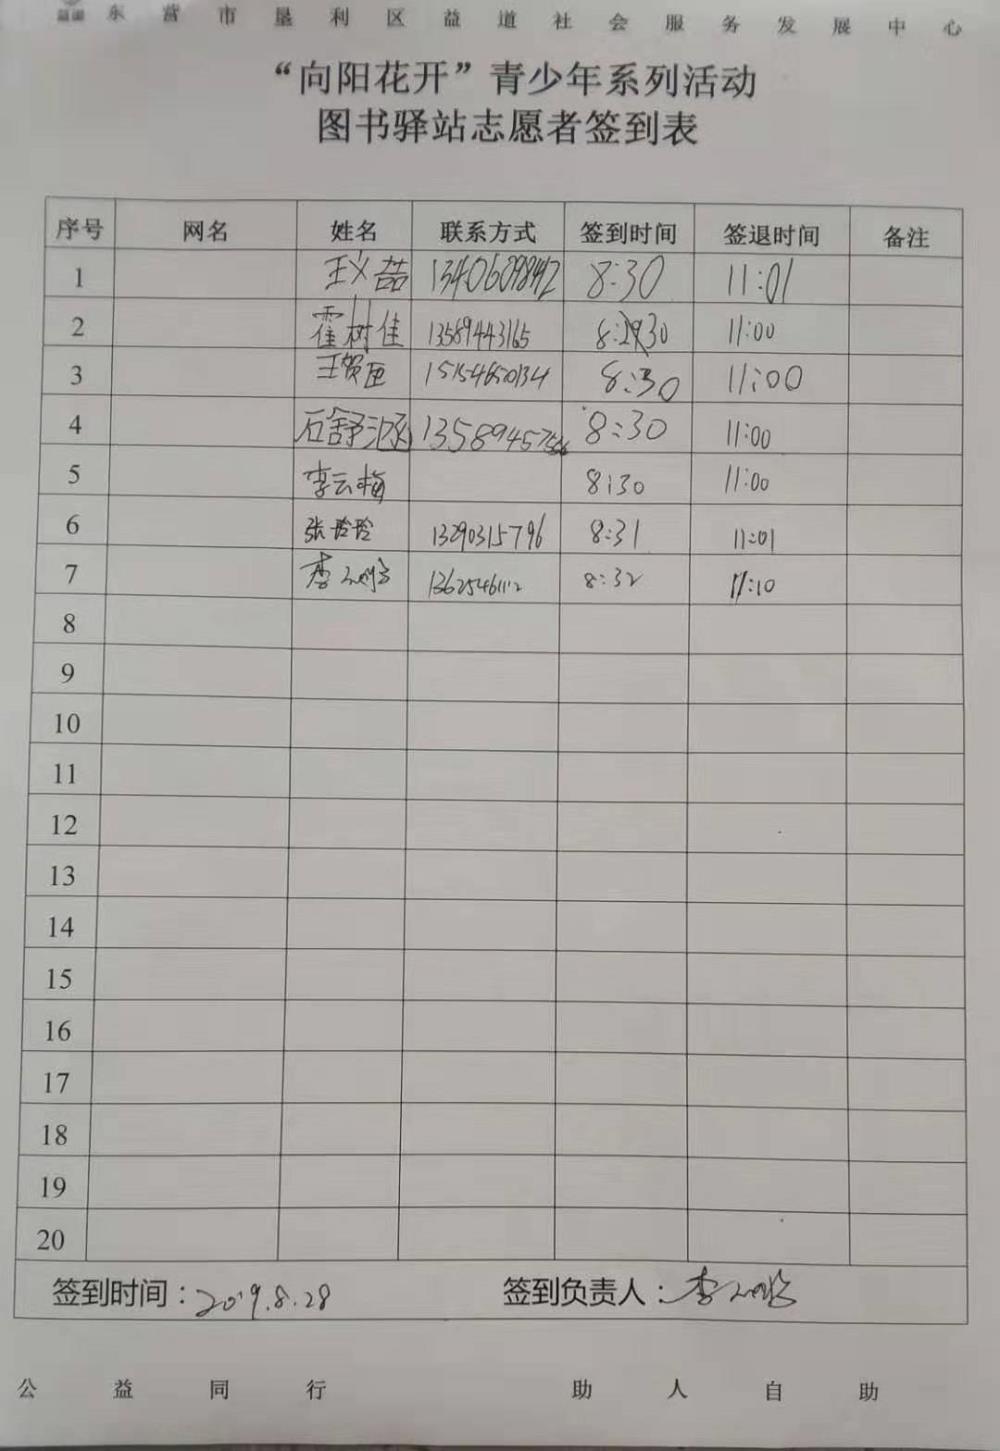 益道 东营市垦利区益道社会服务发展中心
“向阳花开”青少年系列活动
图书驿站志愿者签到表
序号 网名 姓名 联系方式 签到时间 签退时间 备注
1 王义喆 8:30 11:01
2 霍树佳 13589443165 8:30 11:00
3 王贺 15154650134 8:30 11:00
4 石舒涵 8:30 11:00
5 李云梅 8:30 11:00
6 张玲玲 13290315796 8:31 11:01
7 李 8:32 11:10
8
9
10
11
12
13
14
15
16
17
18
19
20
签到时间：2019.8.28 签到负责人：李
公益同行 助人自助